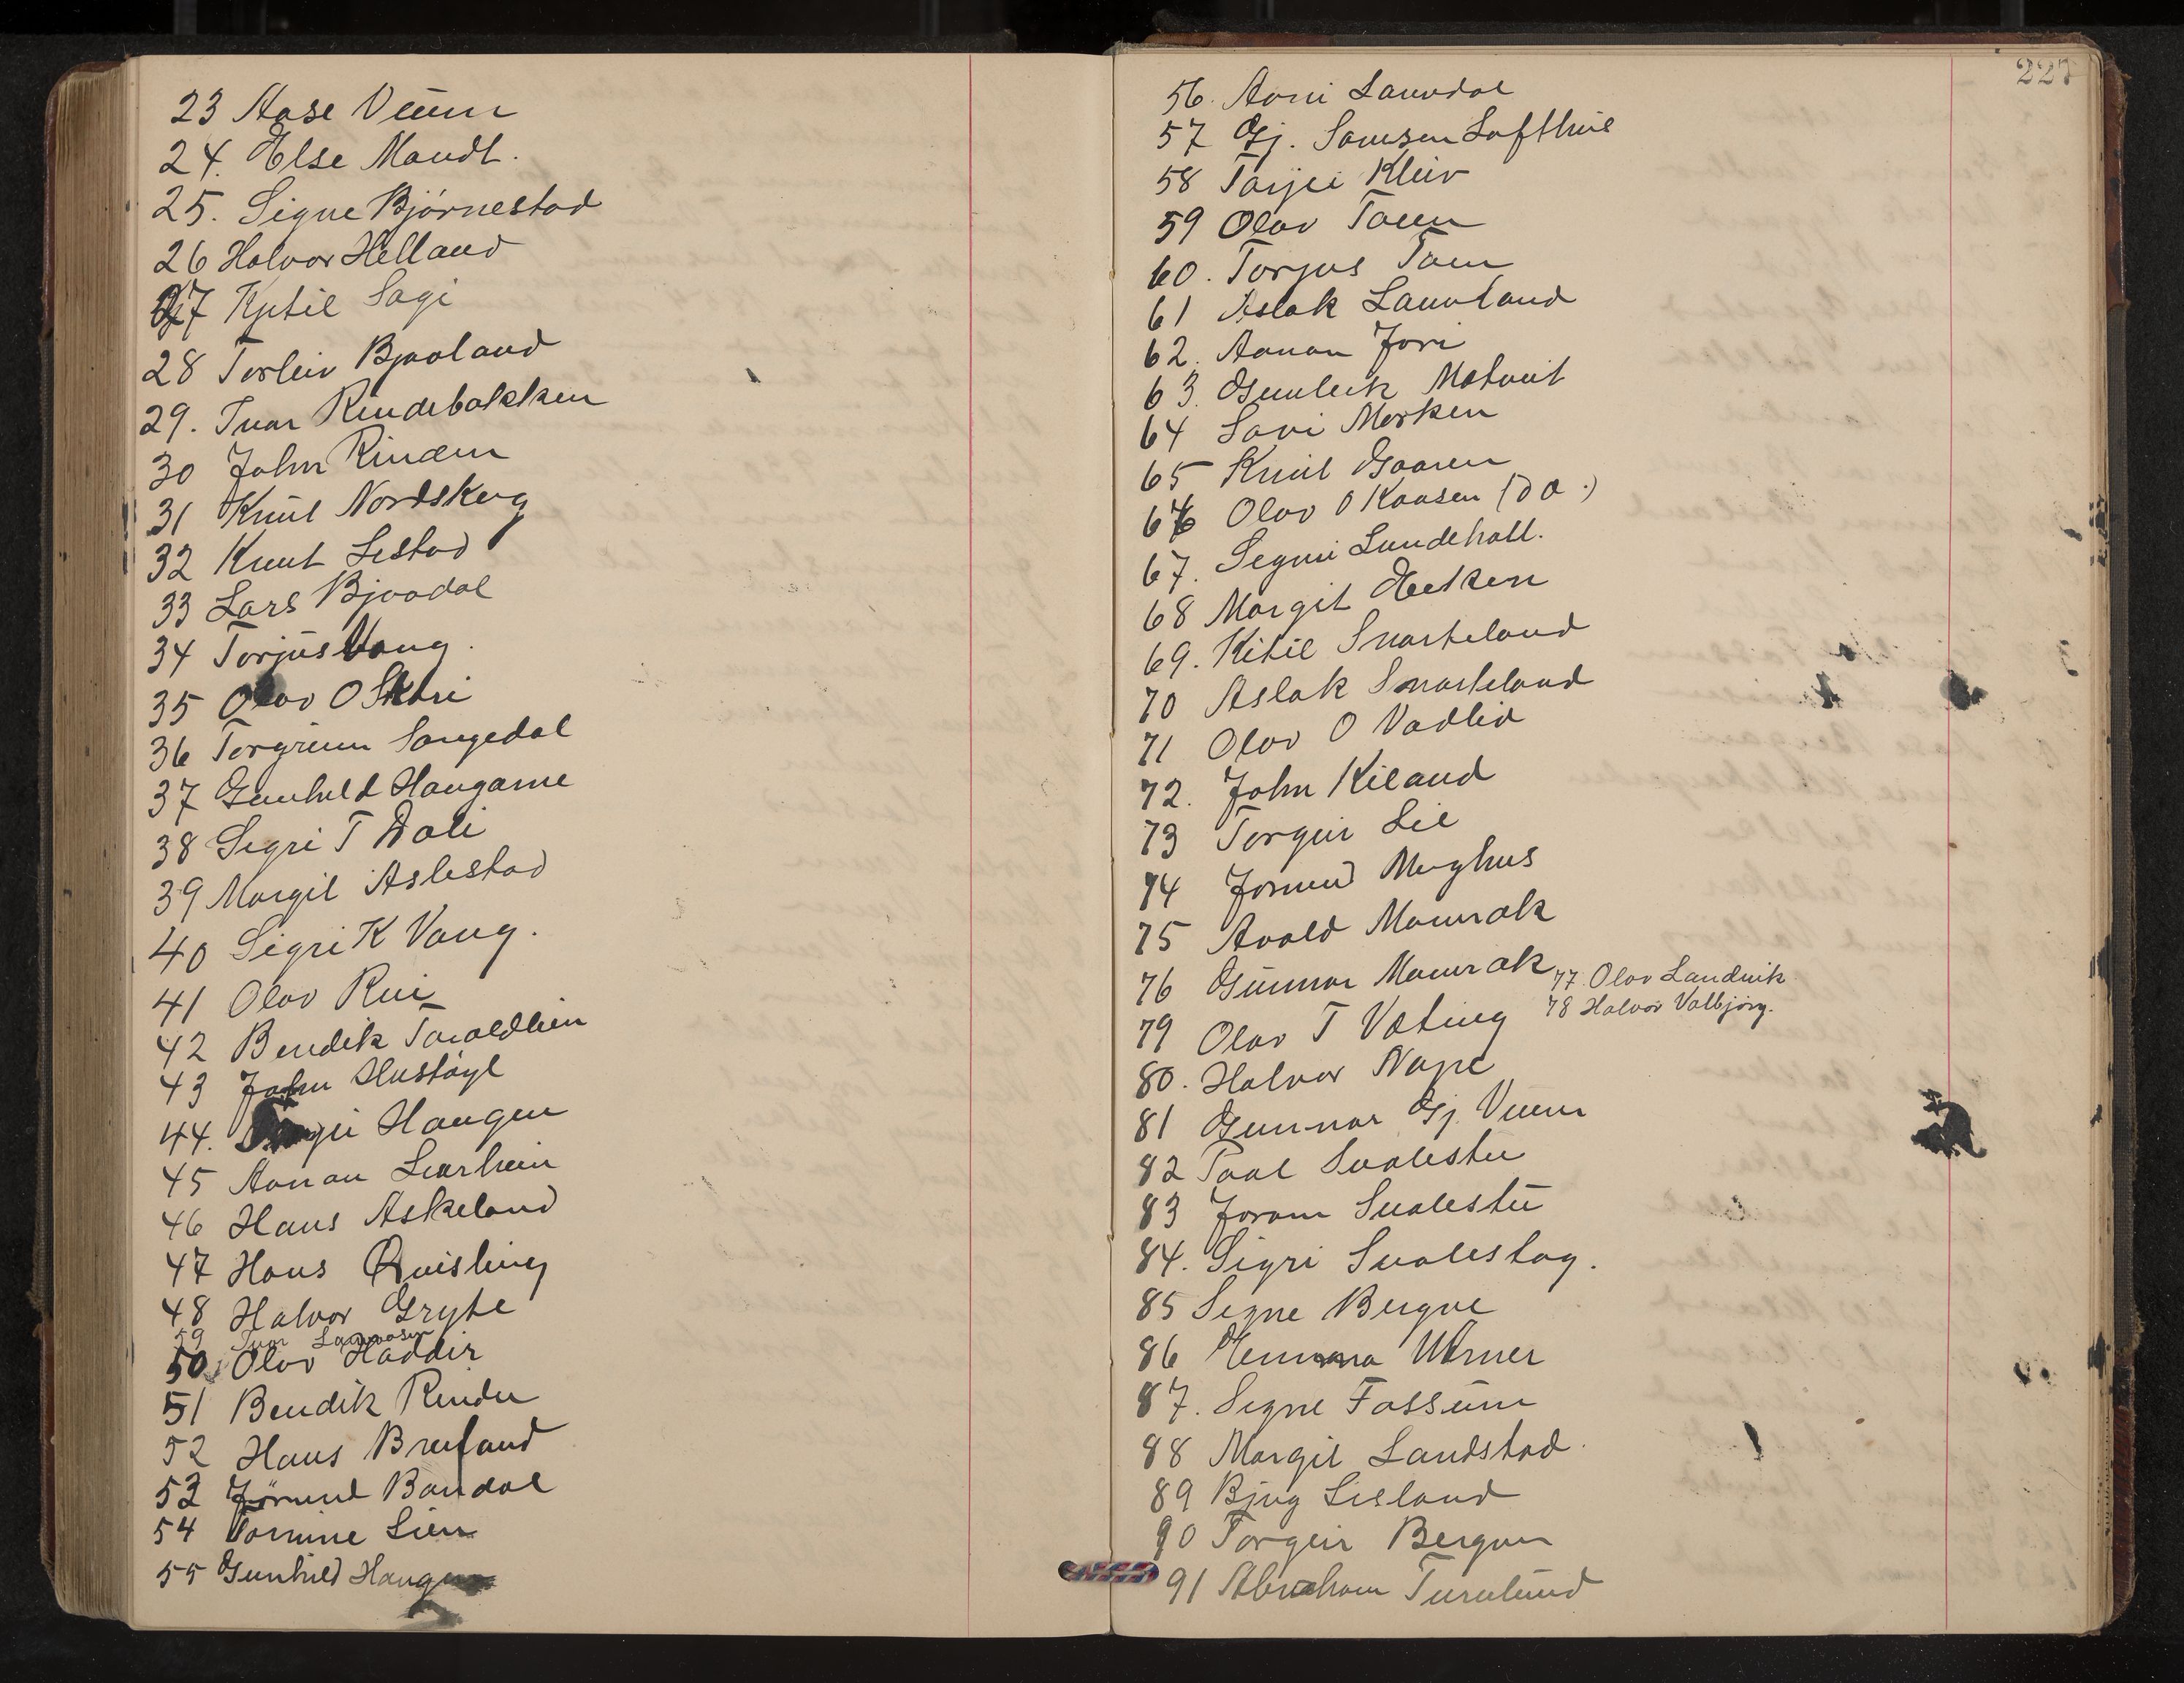 23 Aase Veum
24. Else Mandt.
25. Signe Bjørnestad
26 Halvor Helland
27 Kjetil Sagi
28 Torleiv Bjaaland
29. Ivar Rindebakken
30 John Rinden
31 Knut Nordskog
32 Knut Lestad
33 Lars Bjaadal
34 Torjus Vang.
35 Olav O Skori
36 Torgrim Songedal
37 Gunhild Haugarne
38 Sigri T Dali
39 Margit Aslestad
40 Sigri K Vang.
41 Olav Rui
42 Bendik Taraldlien
43 John Hustøyl
44. Haugen
45 Aanan Lurheim
46 Hans Askeland
47 Hans Quisling
48 Halvor Gryte
59 Ivar
50 Olav Haddir
51 Bendik Rinden
52 Hans Breiland
53 Jørund Bandal
54 Tomine Lien
55 Gunhild Haugen
227
56. Aani Lauvdal
57 Gj. Samsen Lofthus
58 Tarjei Kleiv
59 Olav Taum
60. Torjus Taum
61 Aslak Lauvland
62. Aanan Jori
63. Gunleik Matveit
64 Savi Morken
65 Knut Gaaren
66 Olav O Kaasen (D.O.)
67. Signi Lundehall.
68 Margit Heiken
69. Kitil Snarteland
70 Aslak Snarteland
71 Olav O Vadlid
72. John Kiland
73 Torgeir Lie
74 Jorund Moghus
75 Avald Mannrak
76 Gunnar Mannrak
77. Olav Landvik
78 Halvor Valbjørg.
79 Olav T Væting
80. Halvor Nape
81 Gunnar Gj. Veum
82 Paal Svalestu
83 Joran Svalestu
84. Sigri Svalestog.
85 Signe Bergve
86 Emma Werner
87. Signe Fossum
88 Margit Landstad.
89 Bjug Lisland
90 Torgeir Bergun
91 Abraham Turnlund